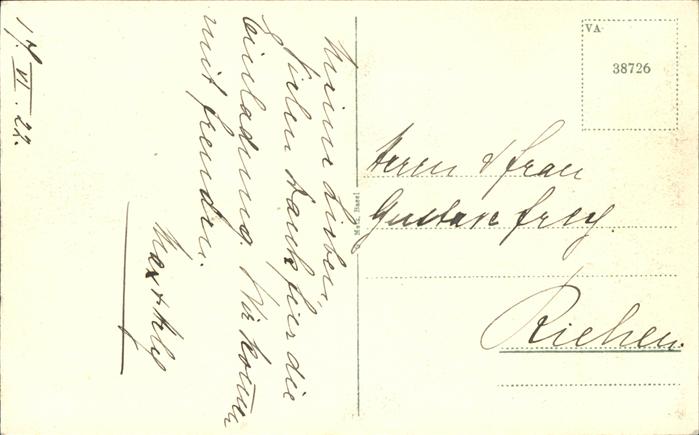 17. VI. 22.
Meine Lieben,
Vielen Dank für die
Einladung. Wir kommen
mit Freuden.
Max & Aly
VA
38726
Metz, Basel
Herrn & Frau
Gustave Frey.
Riehen.